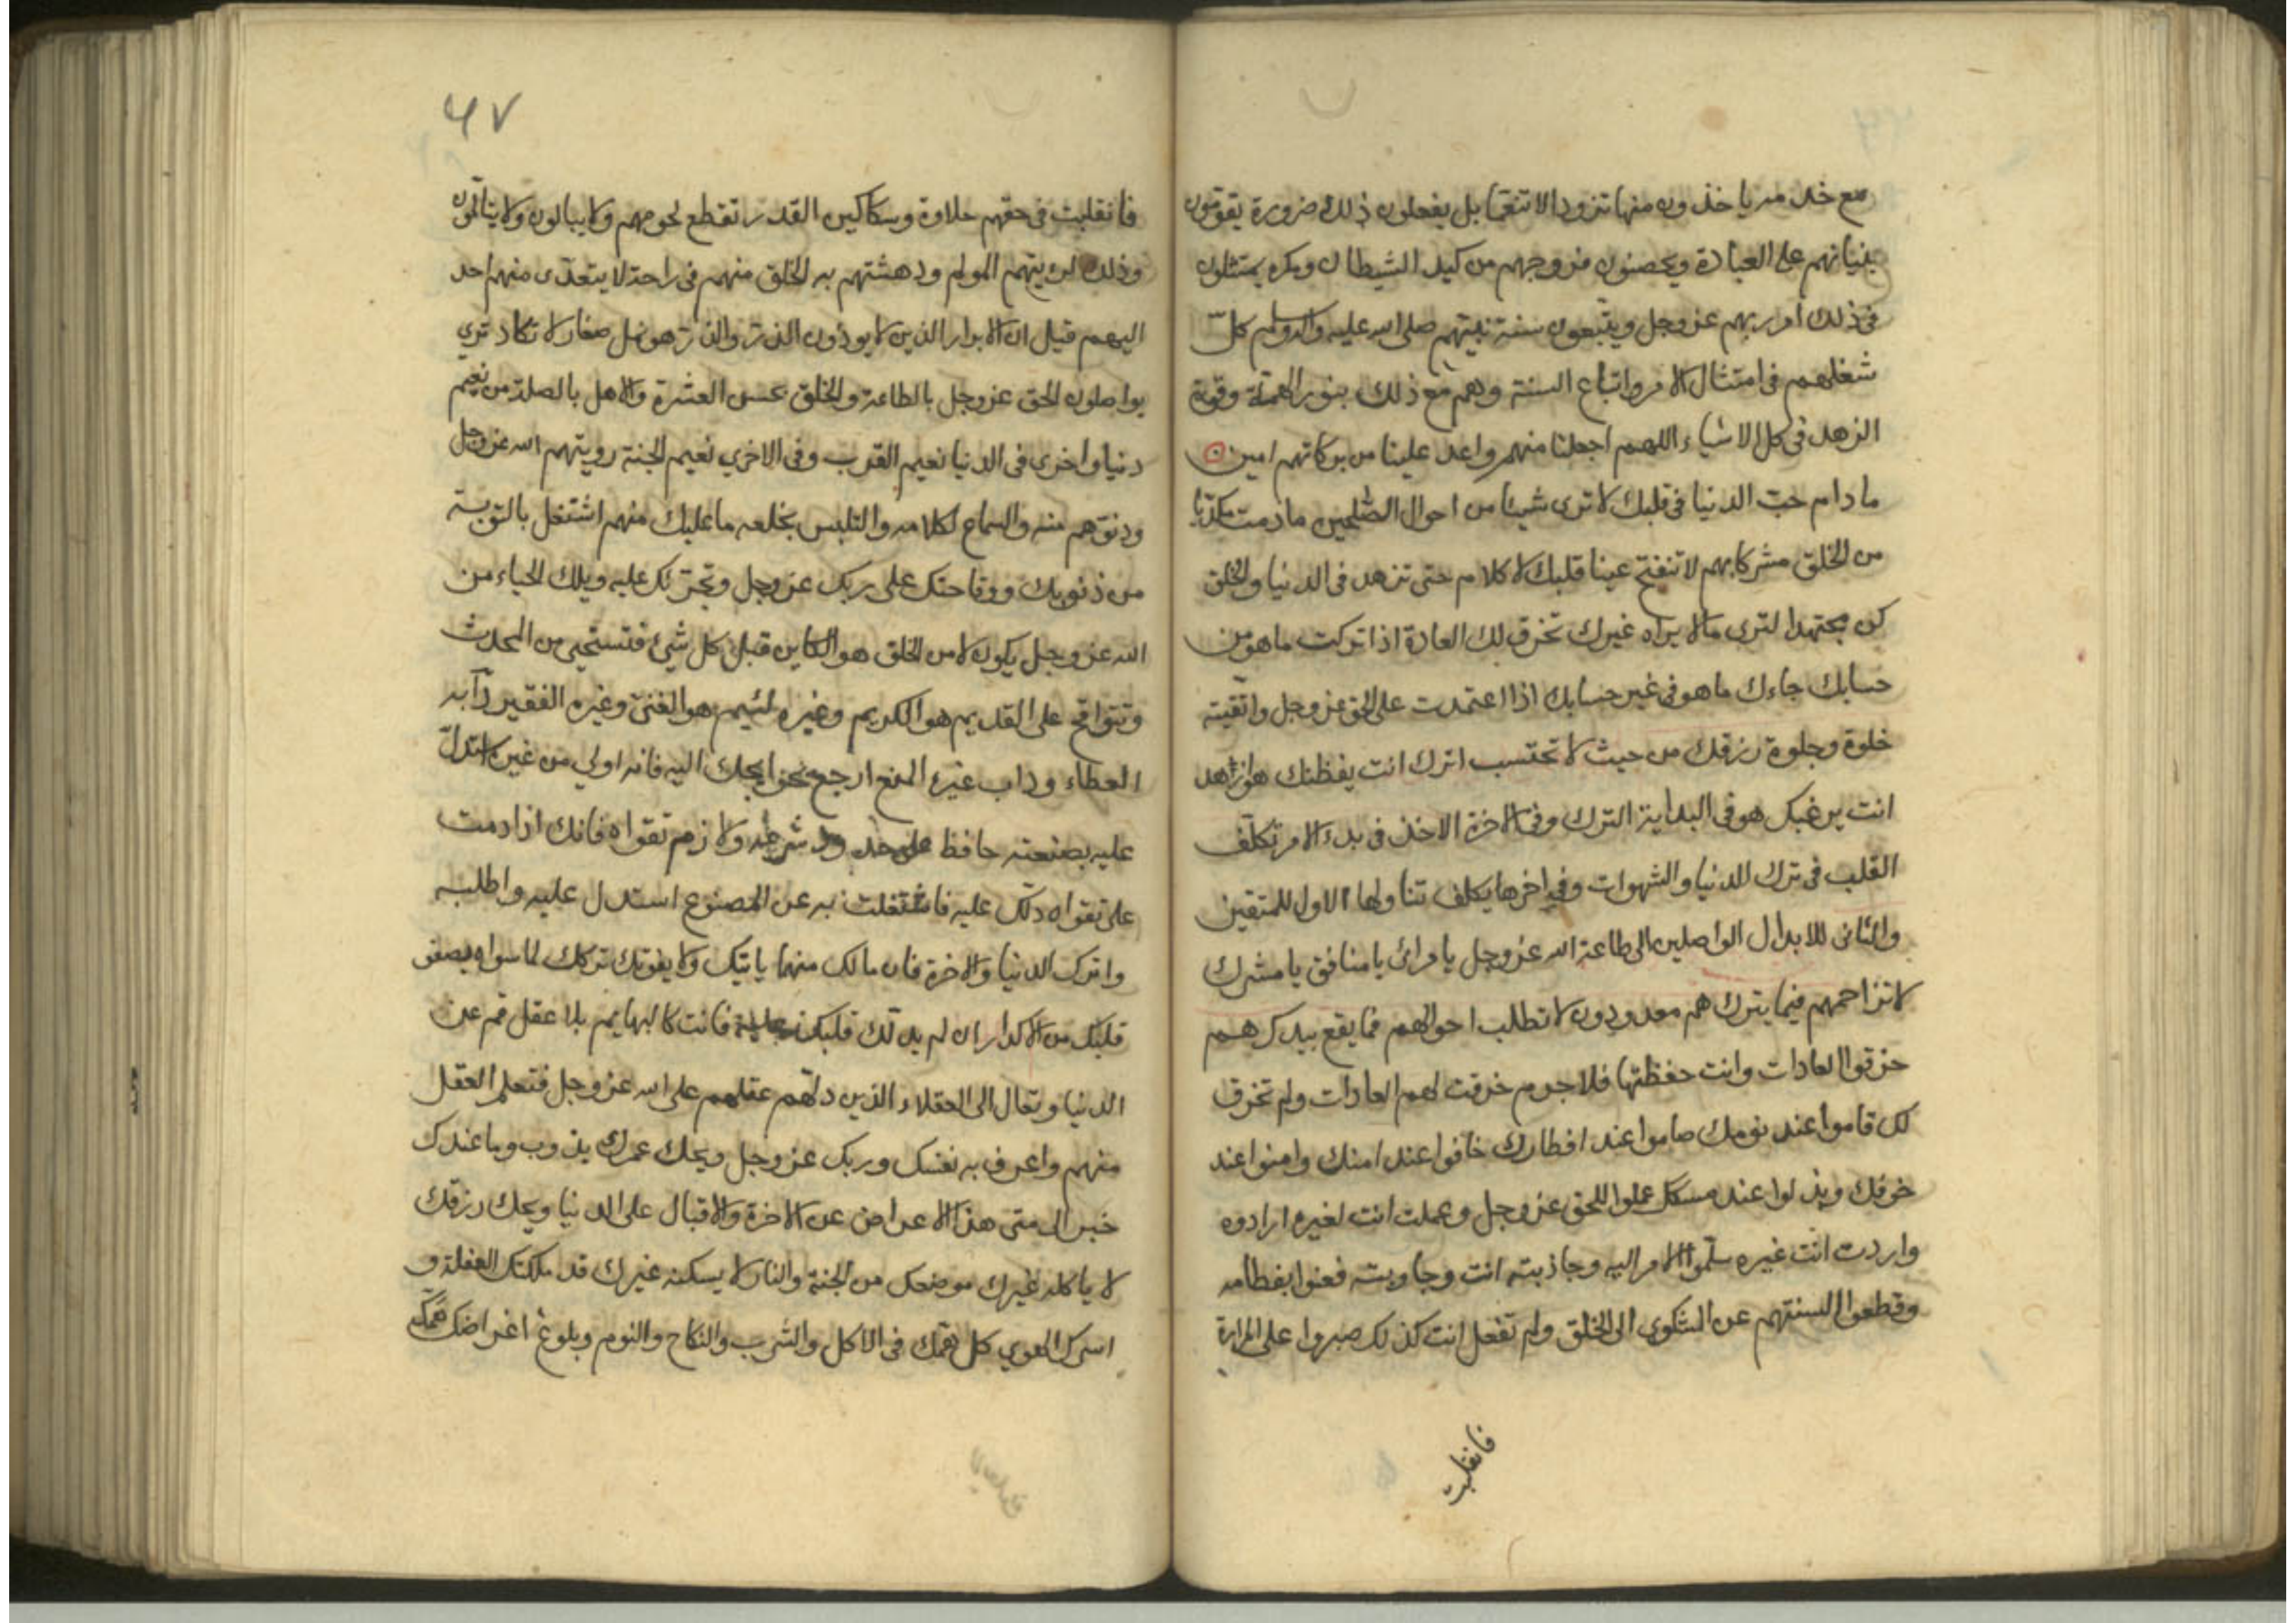 مع خدمه ياخذون منها تزودا لا تنعما بل يفعلون ذلك ضرورة يقومون
بنيانهم على العبادة ويحصنون فروجهم من كيد الشيطان ومكره يمتثلون
في ذلك امر ربهم عز وجل ويتبعون سنة نبيهم صلى الله عليه واله وسلم كل
شغلهم في امتثال الامر واتباع السنة وهم مع ذلك بنور الهمة وقوة
الزهد في كل الاشياء اللهم اجعلنا منهم واعد علينا من بركاتهم امين
ما دام حب الدنيا في قلبك لا ترى شيئا من احوال الصلحين ما دمت مكديا
من الخلق مشركا بهم لا تنفتح عينا قلبك لا كلام حتى تزهد في الدنيا والخلق
كن مجتهدا لترى ما لا يراه غيرك تخرق لك العادة اذا تركت ما هو من
حسابك جاءك ما هو في غير حسابك اذا اعتمدت على الحق عز وجل واتقيته
خلوة وجلوة رزقك من حيث لا تحتسب اترك انت يعطيك هو ازهد
انت يرغبك هو في البداية الترك وفي الاخرة الاخذ في بدء الامر تكلف
القلب في ترك الدنيا والشهوات وفي اخرها يكلف تناولها الاول للمتقين
والثاني للابدال الواصلين الى طاعة الله عز وجل يا مرائ يا منافق يا مشرك
لا تزاحمهم فيما يترك هم معدودون لا تطلب احوالهم فما يقع بيدك هم
خرقوا العادات وانت حفظتها فلا جرم خرقت لهم العادات ولم تخرق
لك قاموا عند نومك صاموا عند افطارك خافوا عند امنك وامنوا عند
خوفك وبذلوا عند مسكك عملوا للحق عز وجل وعملت انت لغيره ارادوه
واردت انت غيره سلموا الامر اليه وجاذبته انت وجاوبته فعنوا بفطامه
وقطعوا السنتهم عن الشكوى الى الخلق ولم تفعل انت كذلك صبروا على المرارة
فانقلبت
٤٧
فانقلبت في حقهم حلاوة وسكاكين القدر تقطع لحومهم ولا يبالون ولا يتالمون
وذلك لرؤيتهم المولم ودهشتهم به الخلق منهم في راحة لا يتعدى منهم احد
اليهم قيل ان الابرار الذين لا يوذون الذر والذر هو نمل صغار لا تكاد ترى
يواصلون الحق عز وجل بالطاعة والخلق بحسن العشرة والاهل بالصلة من نعيم
دنيا واخرى في الدنيا نعيم القرب وفي الاخرى نعيم الجنة رويتهم الله عز وجل
ودنوهم منه والسماع لكلامه والتلبس بخلعه ما عليك منهم اشتغل بالتوبة
من ذنوبك ووقاحتك على ربك عز وجل وتجرئك عليه ويلك الحياء من
الله عز وجل يكون لا من الخلق هو الكاين قبل كل شيء فتستحي من المحدث
وتتواقح على القديم هو الكريم وغيره لئيم هو الغني وغيره الفقير دابه
العطاء وداب غيره المنع ارجع بحوايجك اليه فانه اولى من غيره استدل
عليه بصنعته حافظ على حدود شرعه ولازم تقواه فانك اذا دمت
على تقواه دلك عليه فاشتغلت به عن المصنوع استدل عليه واطلبه
واترك الدنيا والاخرة فان مالك منهما ياتيك ولا يفوتك تركك لما سواه يصفي
قلبك من الاكدار ان لم يدلك قلبك عليه فانت كالبهايم بلا عقل قم عن
الدنيا وتعال الى العقلاء الذين دلهم عقلهم على الله عز وجل فتعلم العقل
منهم واعرف به نفسك وربك عز وجل ويحك عمرك يذوب وما عندك
خبر الى متى هذا الاعراض عن الاخرة والاقبال على الدنيا ويحك رزقك
لا ياكله غيرك موضعك من الجنة والنار لا يسكنه غيرك قد ملكتك الغفلة و
اسرك الهوي كل همك في الاكل والشرب والنكاح والنوم وبلوغ اغراضك همك